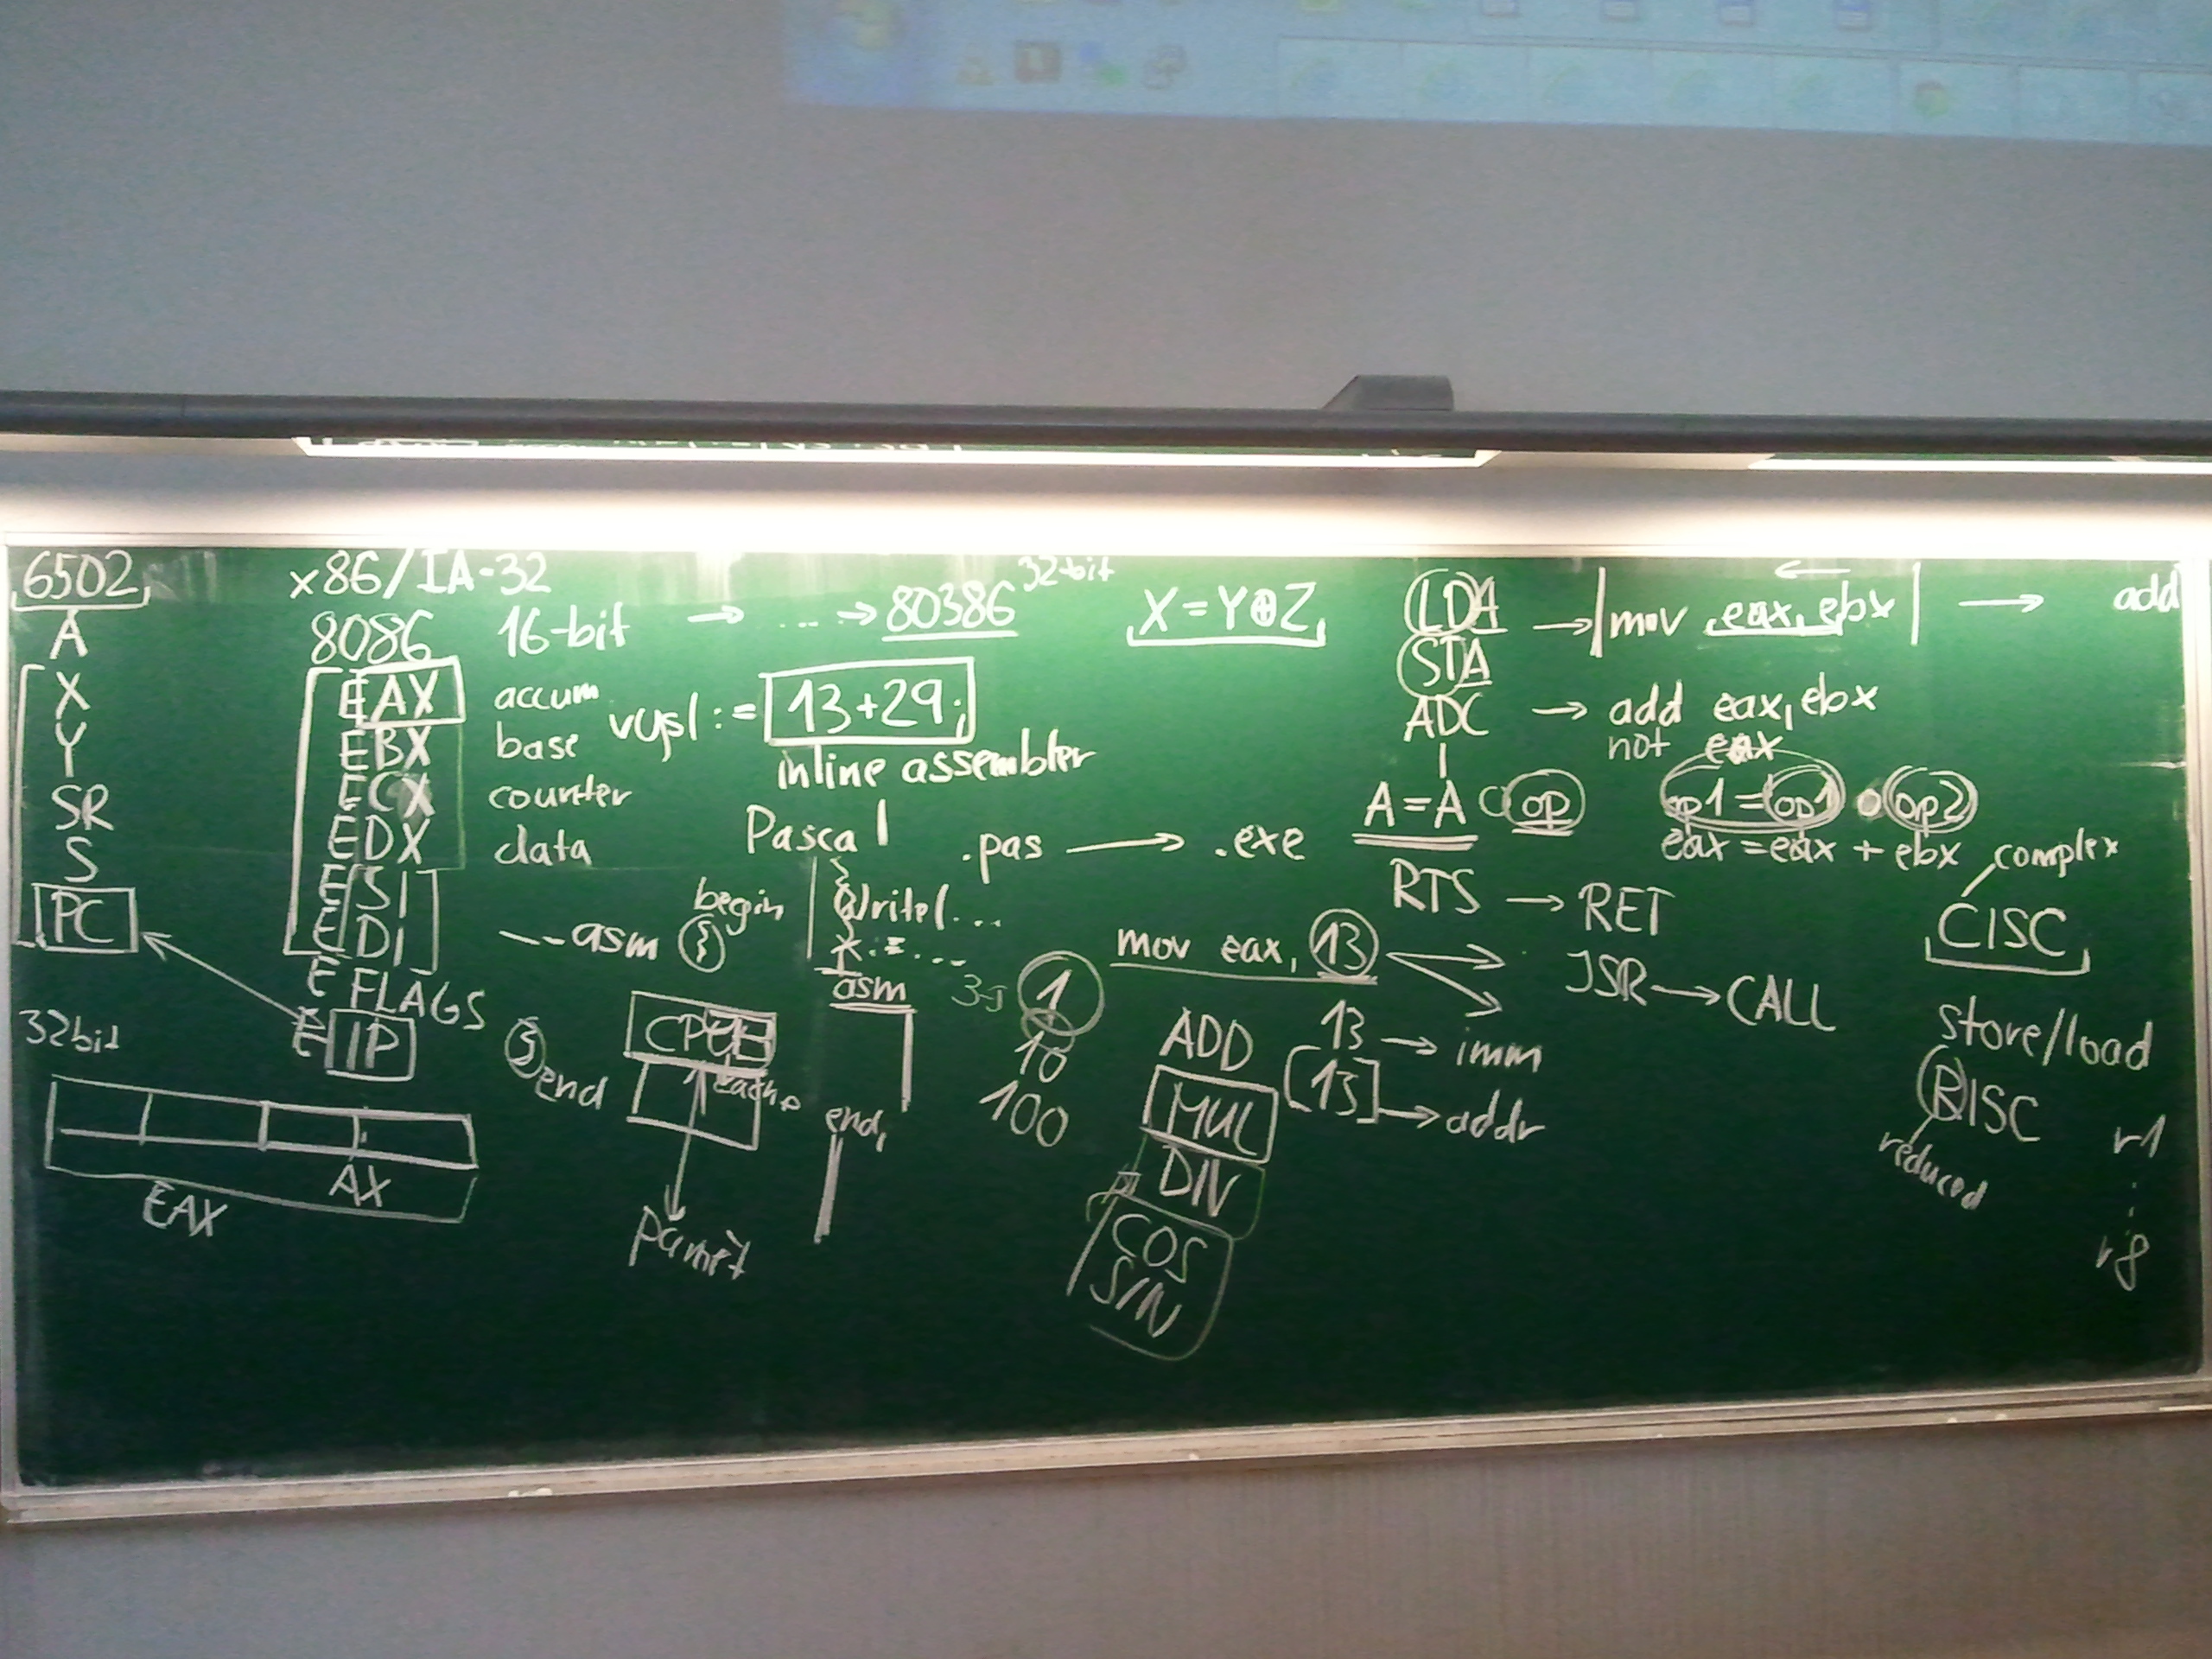 6502
A
X
Y
SR
S
PC
32bit
EAX
AX
x86/IA-32
8086 16-bit → ... → 80386 32-bit
EAX accum
EBX base
ECX counter
EDX data
ESI
EDI
EFLAGS
EIP
vysl := 13+29;
inline assembler
Pascal .pas → .exe
begin
Write(...
X := ...
asm
end,
asm {
} end
CPU
cache
Paměť
3-5
1
10
100
X = Y ⊕ Z
mov eax, 13
13 → imm
[13] → addr
ADD
MUL
DIV
COS
SIN
LDA → mov eax, ebx → add
STA
ADC → add eax, ebx
not eax
A = A ○ op
op1 = op1 ○ op2
eax = eax + ebx
RTS → RET
JSR → CALL
complex
CISC
store/load
RISC
reduced
r1
:
r8